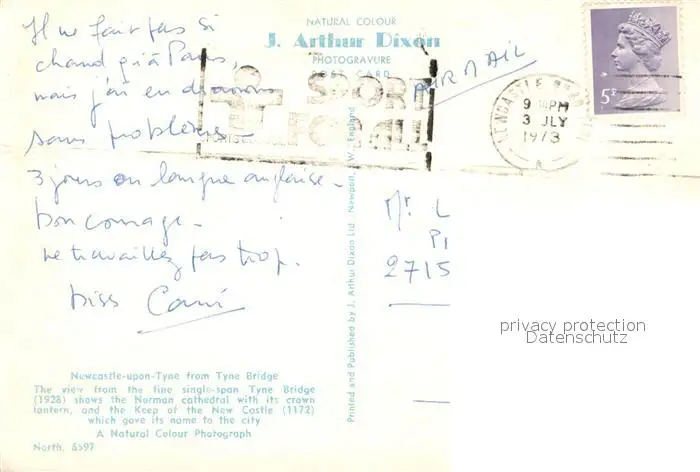 NATURAL COLOUR
J. Arthur Dixon
PHOTOGRAVURE
POST CARD
PAR AVION
SPORT
FOR ALL
NEWCASTLE
9 PM
3 JLY
1973
A
5P
Il ne fait pas si
chaud qu'à Paris,
mais j'ai en
sans problèmes -
3 jours en langue anglaise -
bon courage -
ne travaillez pas trop.
biss
Mr L
PI
2715
Printed and Published by J. Arthur Dixon Ltd. Newport, I.W., England
privacy protection
Datenschutz
Newcastle-upon-Tyne from Tyne Bridge
The view from the fine single-span Tyne Bridge
(1928) shows the Norman cathedral with its crown
lantern, and the Keep of the New Castle (1172)
which gave its name to the city
A Natural Colour Photograph
North. 8597